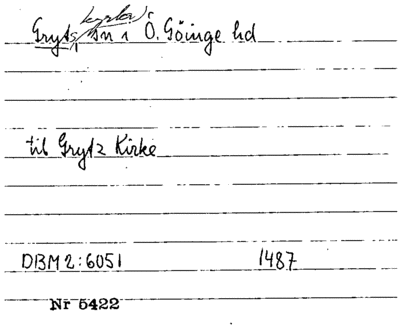 kyrka
Gryts sn i Ö. Göinge hd
til Grytz Kirke
DBM 2:6051 1487
Nr 5422